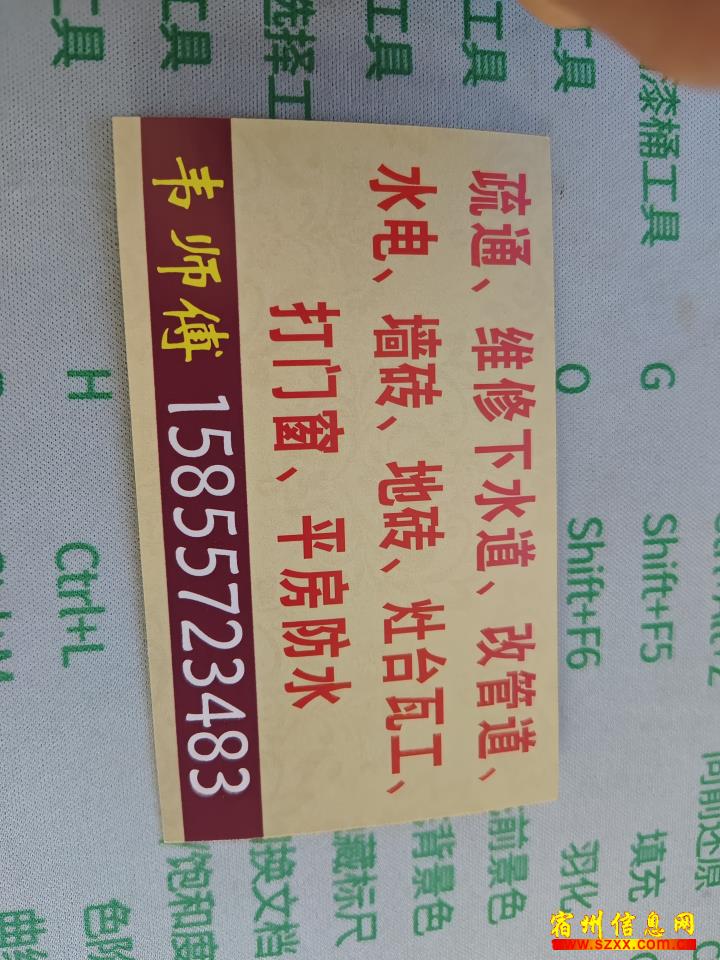 疏通、维修下水道、改管道、
水电、墙砖、地砖、灶台瓦工、
打门窗、平房防水
韦师傅 15855723483
工具
工具
选择工
工具
工具
工具
漆桶工具
G
O
H
Shift+F5
Shift+F6
Ctrl+L
向前还原
填充
羽化
前景色
背景色
藏标尺
换文档
饱和度
色阶
曲线
宿州信息网
www.szxx.com.cn